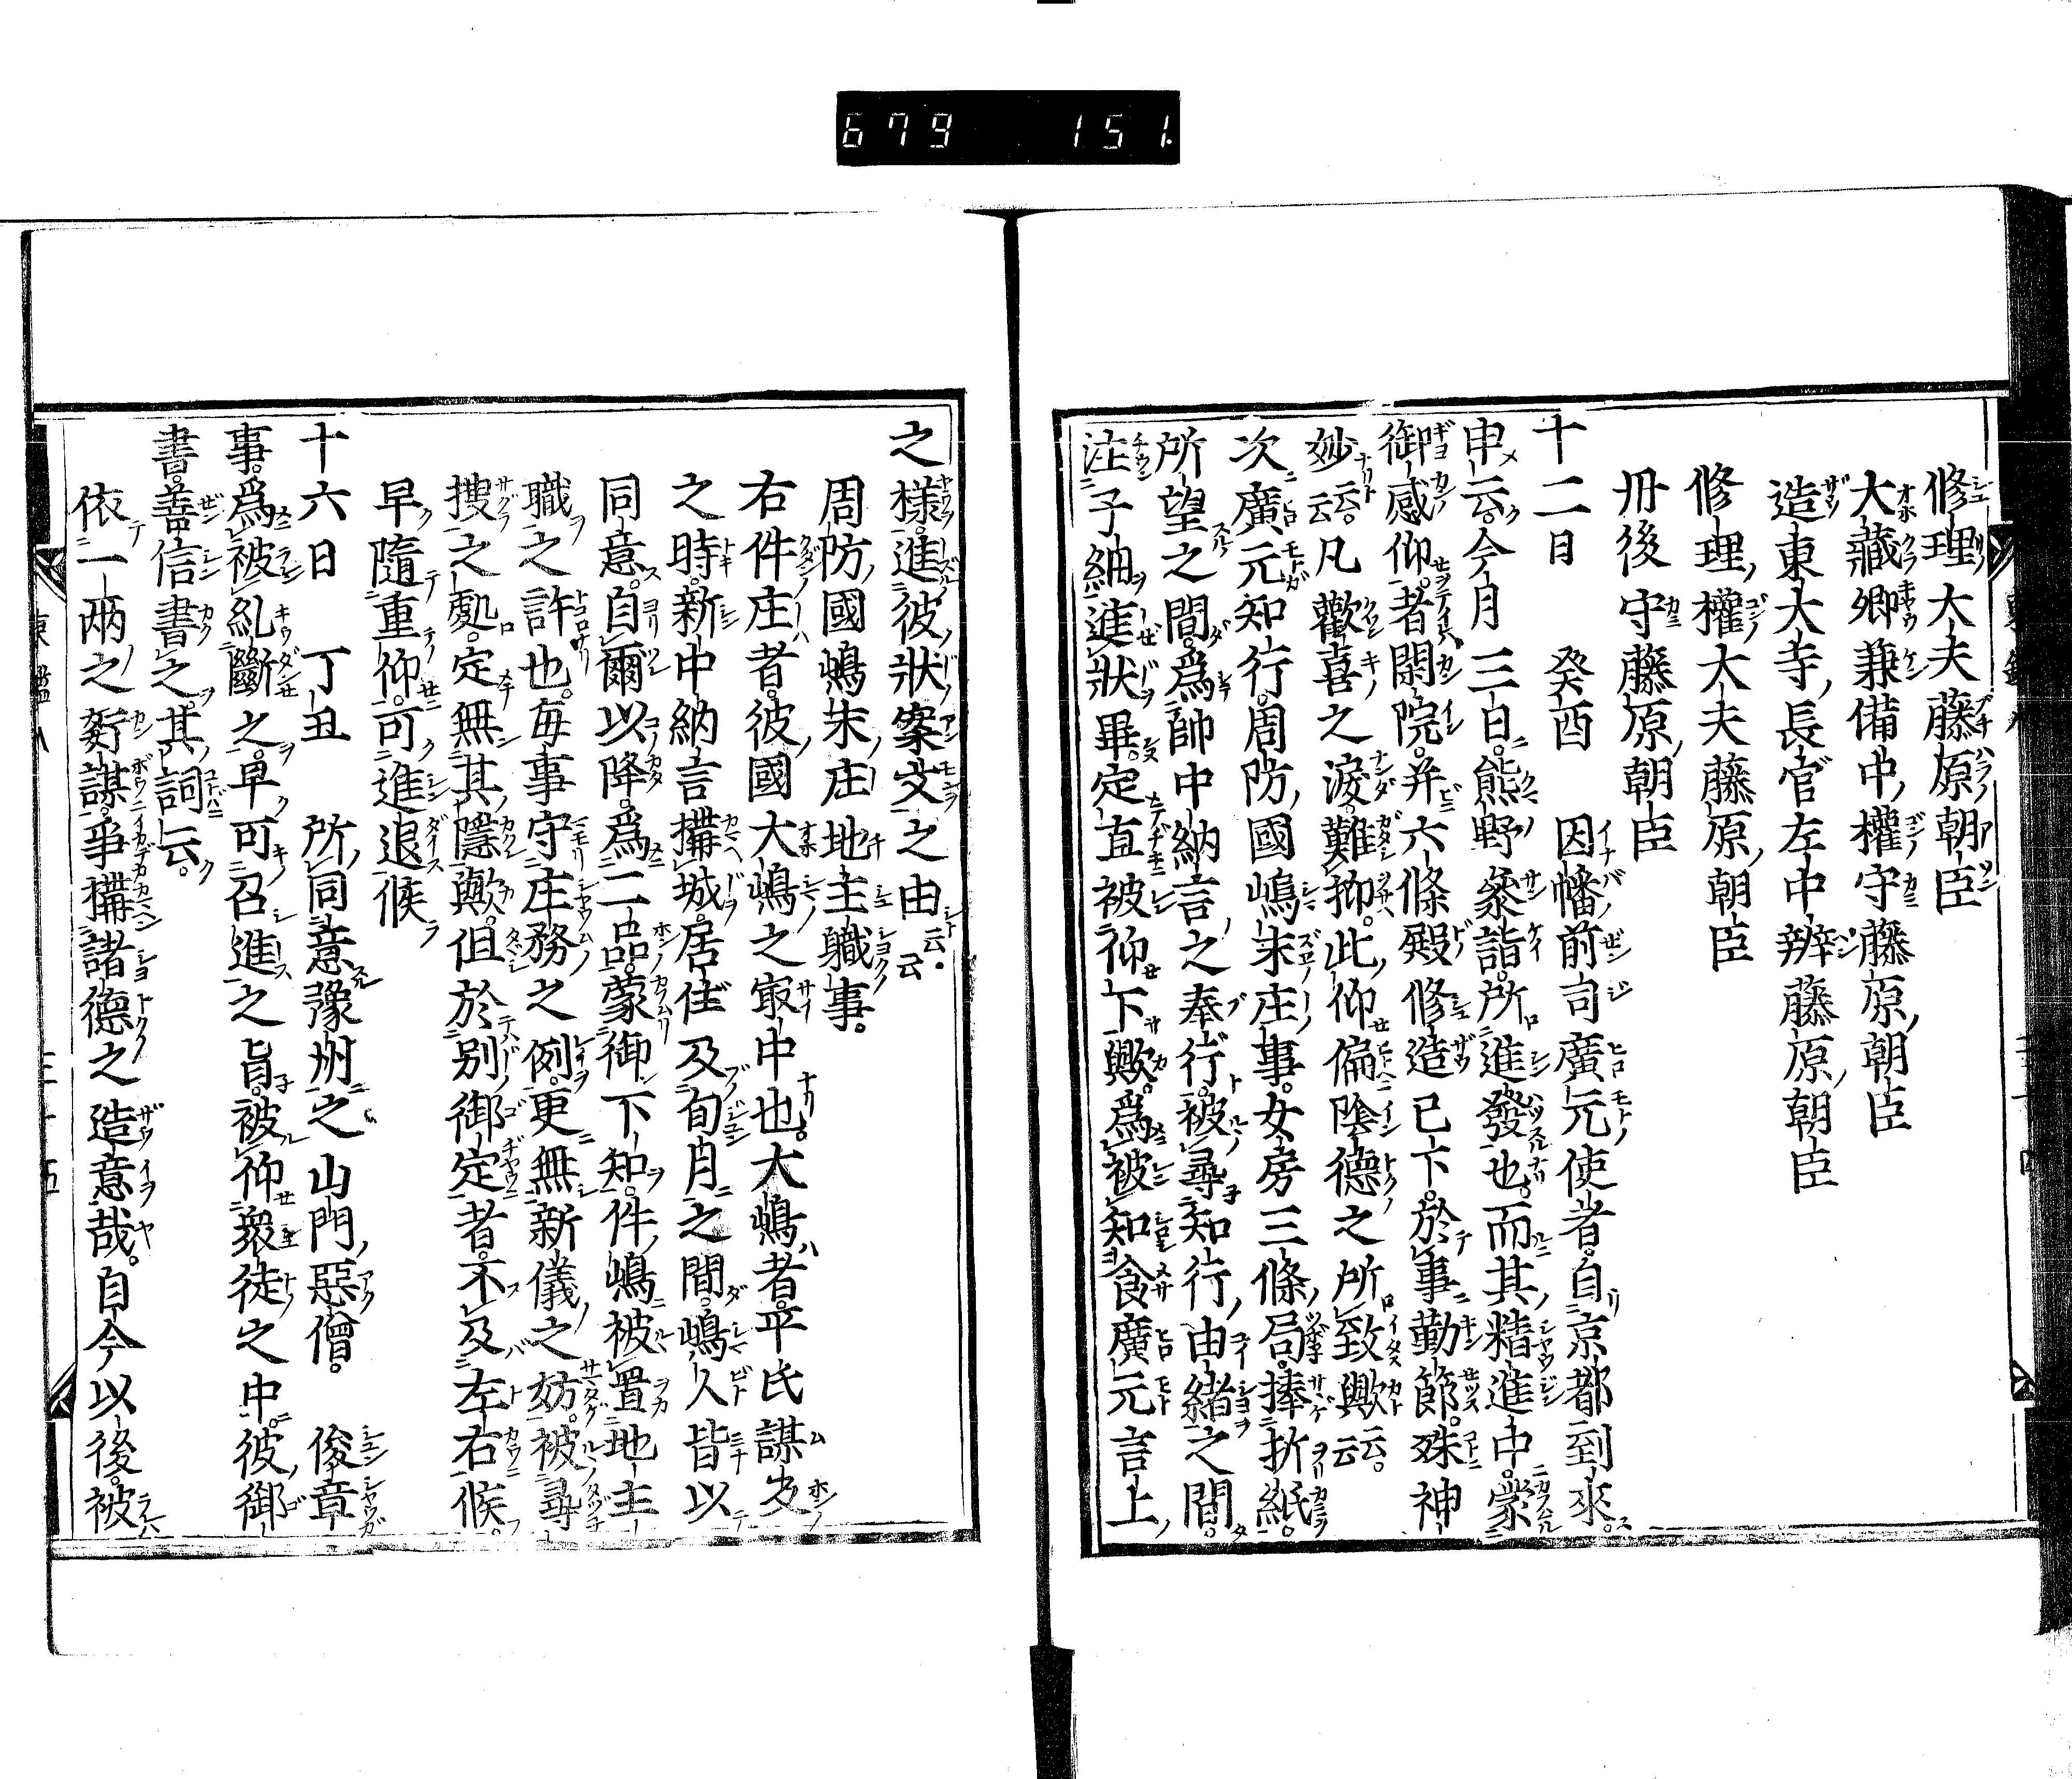 679 151.
修理大夫藤原朝臣
大藏卿兼備中權守藤原朝臣
造東大寺長官左中辨藤原朝臣
修理權大夫藤原朝臣
丹後守藤原朝臣
十二日 癸酉 因幡前司廣元使者。自京都到來。
申云。今月三日。熊野參詣。所進發也。而其精進中。蒙
御感仰。者閑院。并六條殿修造已下。於事勤節。殊神
妙云云。凡歡喜之涙。難抑。此仰偏陰德之所致歟云云。
次廣元知行。周防國嶋末庄事。女房三條局。捧折紙。
所望之間。爲帥中納言之奉行。被尋知行由緒之間。
注子細進狀畢。定直被仰下歟。爲被知食廣元言上
之樣。進彼狀案文之由云云
周防國嶋末庄地主職事。
右件庄者。彼國大嶋之最中也。大嶋者。平氏謀反
之時。新中納言搆城。居住及旬月之間。嶋人皆以
同意。自爾以降。爲二品。蒙御下知。件嶋被置地主
職之許也。毎事守庄務之例。更無新儀之妨。被尋
搜之處。定無其隱歟。但於別御定者。不及左右候。
早隨重仰。可進退候
十六日 丁丑 所同意豫州之山門惡僧。俊章
事。爲被糺斷之。早可召進之旨。被仰衆徒之中。彼御
書。善信書之。其詞云。
依一兩之姧謀。爭搆諸德之造意哉。自今以後。被